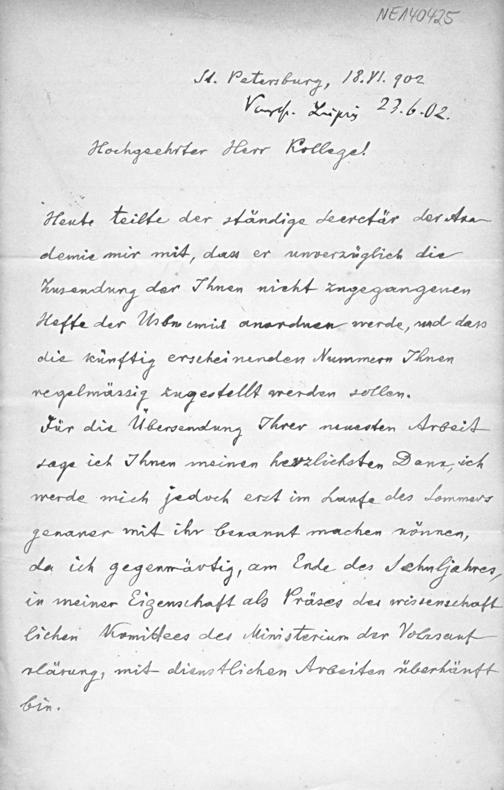 NE140425
St. Petersburg, 18.VI.902
23.6.02.
Hochgeehrter Herr Kollege!
Heute teilte der ständige Secretär der Aka-
demie mir mit, dass er unverzüglich die
Zusendung der Ihnen nicht zugegangenen
Hefte der anordnen werde, und dass
die künftig erscheinenden Nummern Ihnen
regelmässig zugestellt werden sollen.
Für die Übersendung Ihrer neuesten Arbeit
sage ich Ihnen meinen herzlichsten Dank, ich
werde mich jedoch erst im Laufe des Sommers
genauer mit ihr bekannt machen können,
da ich gegenwärtig, am Ende des Schuljahres,
in meiner Eigenschaft als Präses des wissenschaft
lichen Komittees des Ministerium der Volksauf
klärung, mit dienstlichen Arbeiten überhäuft
bin.